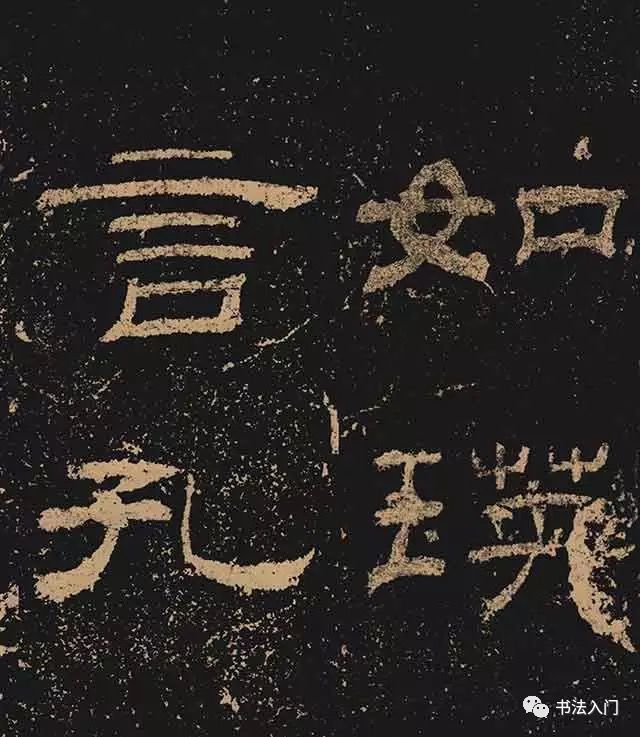 如瑛
言孔
书法入门